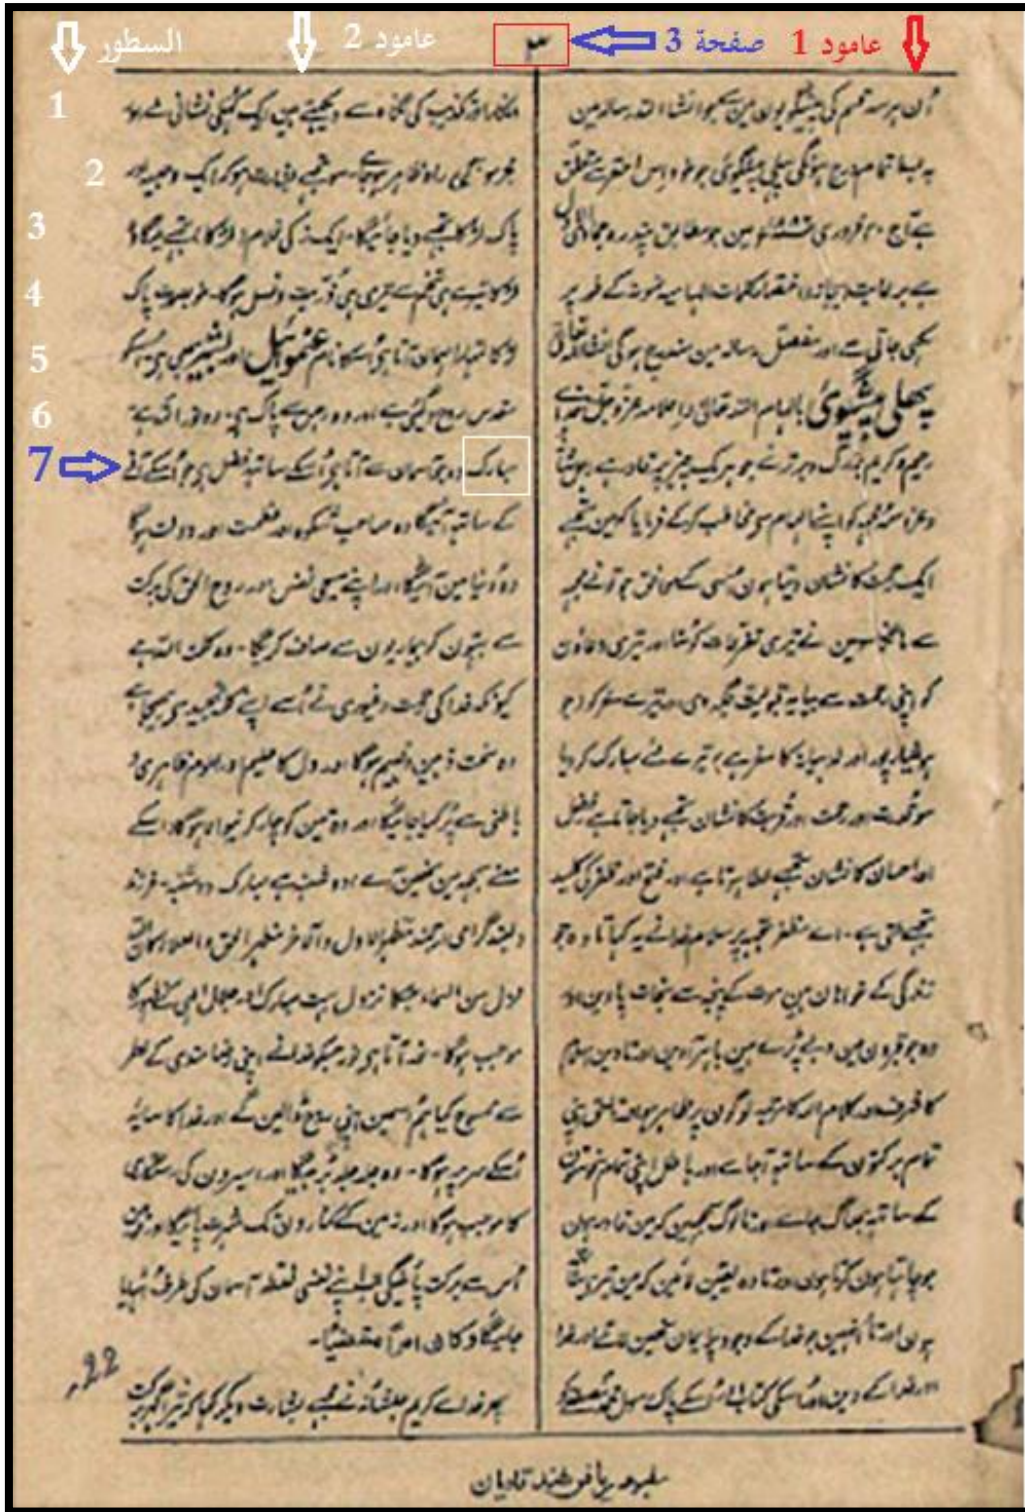 عامود 1
صفحة 3
٣
عامود 2
السطور
اُن ہر سہ قسم کی پیشگویوں میں سے جو انشاء اللہ رسالہ میں
بہ بسط تمام درج ہونگی پہلی پیشگوئی جو خود اس احقر سے متعلق
ہے آج ٢٠ فروری میں جو مطابق پندرہ جمادی الاول
ہے برعایت ایجاز و اختصار کلمات الہامیہ نمونہ کے طور پر
لکھی جاتی ہے اور مفصل رسالہ میں مندرج ہوگی انشاء اللہ تعالیٰ
پہلی پیشگوئی بالہام اللہ تعالیٰ و اعلامہ عز و جل خدائے
رحیم و کریم بزرگ و برتر نے جو ہر یک چیز پر قادر ہے جل شانہ
و عز اسمہ مجھ کو اپنے الہام سے مخاطب کرکے فرمایا کہ مین تجھے
ایک رحمت کا نشان دیتا ہون اُسی کے موافق جو تونے مجھ
سے مانگا سو مین نے تیری تضرعات کو سنا اور تیری دعاؤن
کو اپنی رحمت سے بپایہ قبولیت جگہ دی اور تیرے سفر کو (جو
ہوشیارپور اور لودہیانہ کا سفر ہے) تیرے لئے مبارک کر دیا
سو قدرت اور رحمت اور قربت کا نشان تجھے دیا جاتا ہے فضل
اور احسان کا نشان تجھے عطا ہوتا ہے اور فتح اور ظفر کی کلید
تجھے ملتی ہے۔ اے مظفر تجھ پر سلام خدا نے یہ کہا تا وہ جو
زندگی کے خواہان ہین موت کے پنجہ سے نجات پاوین اور
وہ جو قبرون مین دبے پڑے ہین باہر آوین اور تا دین اسلام
کا شرف اور کلام اللہ کا مرتبہ لوگون پر ظاہر ہو اور تا حق اپنی
تمام برکتون کے ساتھ آجائے اور باطل اپنی تمام نحوستون
کے ساتھ بھاگ جائے اور تا لوگ سمجھین کہ مین قادر ہون
جو چاہتا ہون کرتا ہون اور تا وہ یقین لائین کہ مین تیرے ساتھ
ہون اور تا اُنہین جو خدا کے وجود پر ایمان نہین لاتے اور خدا
اور خدا کے دین اور اُسکی کتاب اور اُسکے پاک رسول محمد مصطفےٰ کو
1 انکار اور تکذیب کی نگاہ سے دیکھتے ہین ایک کھلی نشانی ملے اور
2 مجرمون کی راہ ظاہر ہو جائے سو تجھے بشارت ہو کہ ایک وجیہ اور
3 پاک لڑکا تجھے دیا جائیگا۔ ایک زکی غلام (لڑکا) تجھے ملیگا وہ
4 لڑکا تیرے ہی تخم سے تیری ہی ذریت و نسل ہوگا۔ خوبصورت پاک
5 لڑکا تمہارا مہمان آتا ہے اُسکا نام عنموائیل اور بشیر بھی ہے۔ اُسکو
6 مقدس روح دی گئی ہے اور وہ رجس سے پاک ہے۔ وہ نور اللہ ہے
7 مبارک وہ جو آسمان سے آتا ہے اُسکے ساتھ فضل ہے جو اُسکے آنے
کے ساتھ آئیگا وہ صاحب شکوہ اور عظمت اور دولت ہوگا
وہ دنیا مین آئیگا اور اپنے مسیحی نفس اور روح الحق کی برکت
سے بہتون کو بیماریون سے صاف کریگا۔ وہ کلمۃ اللہ ہے
کیونکہ خدا کی رحمت و غیوری نے اُسے اپنے کلمہ تمجید سے بھیجا ہے
وہ سخت ذہین و فہیم ہوگا اور دل کا حلیم اور علوم ظاہری و
باطنی سے پُر کیا جائیگا اور وہ تین کو چار کرنیوالا ہوگا (اسکے
معنے سمجھ مین نہین آئے) دوشنبہ ہے مبارک دوشنبہ۔ فرزند
دلبند گرامی ارجمند مظہر الاول والآخر مظہر الحق والعلاء کان اللہ
نزل من السماء جسکا نزول بہت مبارک اور جلال الٰہی کے ظہور کا
موجب ہوگا۔ نور آتا ہے نور جسکو خدا نے اپنی رضامندی کے عطر
سے ممسوح کیا ہم اسمین اپنی روح ڈالین گے اور خدا کا سایہ
اُسکے سر پر ہوگا۔ وہ جلد جلد بڑھیگا اور اسیرون کی رستگاری
کا موجب ہوگا اور زمین کے کنارون تک شہرت پائیگا اور قومین
اُس سے برکت پائینگی تب اپنے نفسی نقطہ آسمان کی طرف اُٹھایا
جائیگا وکان امرًا مقضیًا۔
پھر خدائے کریم جلشانہ نے مجھے بشارت دیکر کہا کہ تیرا گھر برکت
22
مطبوعہ ریاض ہند قادیان